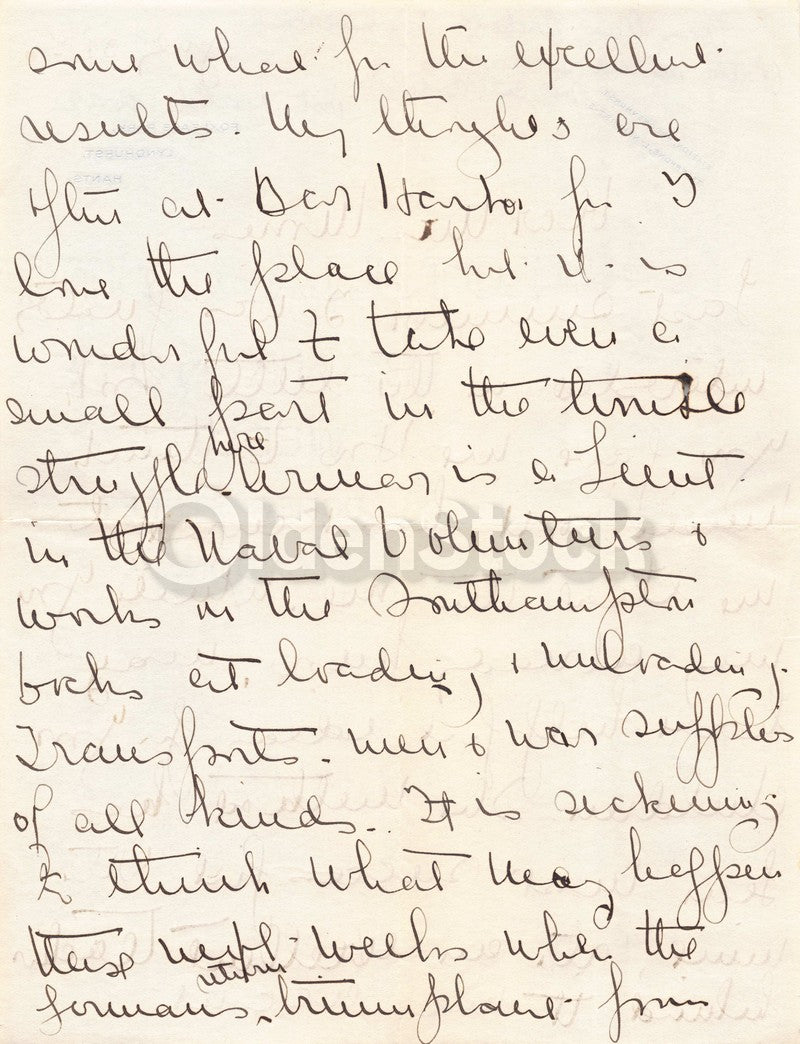 some what for the excellent
results. My thoughts are
often at Bar Harbor for I
love the place but it is
wonderful to take even a
small part in the terrible
struggle here. Norman is a Lieut.
in the Naval Volunteers &
works in the Southampton
Docks at loading & unloading
Transports. men & war supplies
of all kinds. It is sickening
to think what may happen
these next weeks when the
Germans return triumphant from
OldenStock
LYNDHURST.
HANTS.